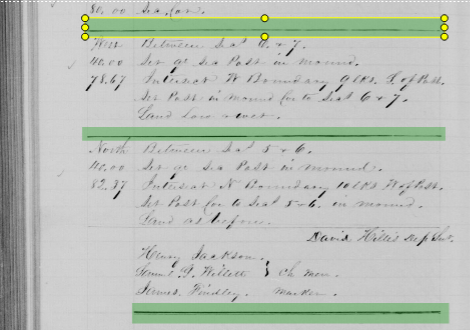 80.00 Sec. Cor.
West Between Secs 6 & 7.
40.00 Set qr Sec Post in mound.
78.67 Intersect W Boundary 9 lks. of Post.
Set Post in mound Cor to Secs 6 & 7.
Land low & wet.
North Between Secs 5 & 6.
40.00 Set qr Sec Post in mound.
82.37 Intersect N Boundary 10 lks W of Post.
Set Post Cor to Secs 5 & 6. in mound.
Land as before.
David Hillis Dep Sur.
Henry Jackson.
Samuel D. Willett } Ch men.
James Findley. Marker.